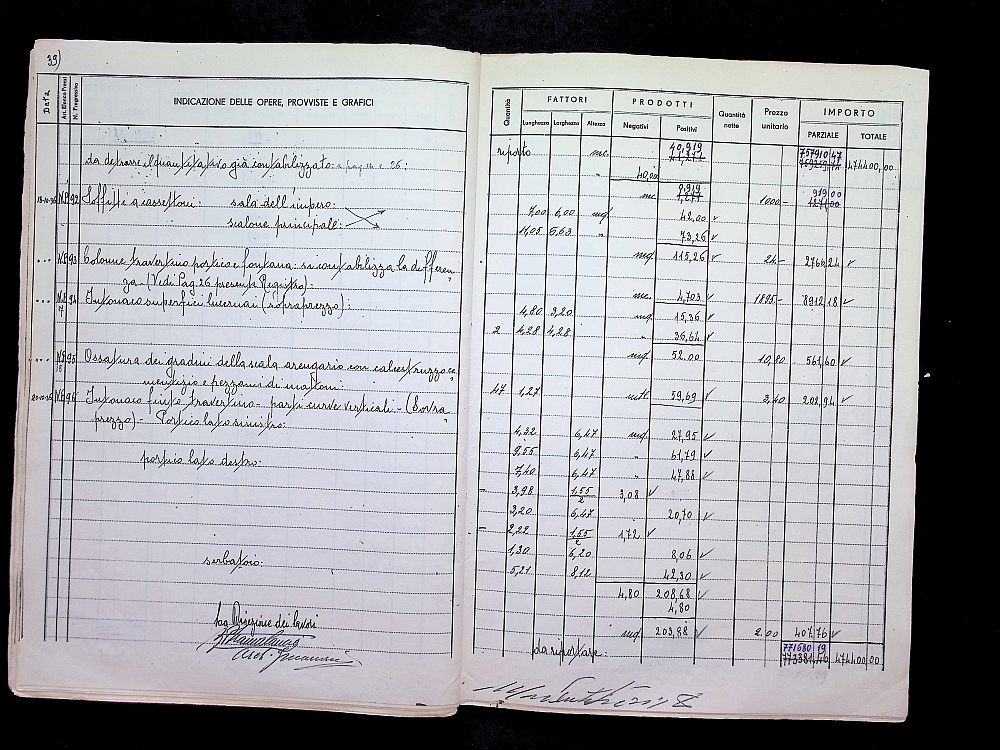 39)
Data
Art. Elenco Prezzi
N. Progressivo
INDICAZIONE DELLE OPERE, PROVVISTE E GRAFICI
da detrarre il quantitativo già contabilizzato: a pag. 26:
N.P. 92 Soffitti a cassettoni: sala dell'impero:
scalone principale:
... N.P. 93 Colonne travertino portico e fontana: si contabilizza la differen
za. (Vedi Pag. 26 presente Registro):
... 94 Intonaco superfici lucernai (sopraprezzo):
... N.P. 95 Ossatura dei gradini della scala arengario con calcestruzzo ce
mentizio e pezzami di mattoni:
N.P. 96 Intonaco finto travertino - parti curve verticali - (Sovra
prezzo) - Portico lato sinistro:
portico lato destro:
serbatoio:
La Direzione dei lavori
Quantità
FATTORI
Lunghezza Larghezza Altezza
PRODOTTI
Negativi Positivi
Quantità nette
Prezzo unitario
IMPORTO
PARZIALE TOTALE
riporto mc. 40,919 757910 47 474400,00
" 40,00
mc. 0,919 1000- 919 00
7,00 6,00 mq. 42,00
11,05 6,63 " 73,26
mq. 115,26 24,- 2766,24
mc. 4,703 1895- 8912,18
4,80 3,20 mq. 15,36
2 4,28 4,28 " 36,64
mq. 52,00 10,80 561,60
47 1,27 mtl. 59,69 3,40 202,94
4,32 6,47 mq. 27,95
9,55 6,47 " 61,79
7,40 6,47 " 47,88
- 3,98 1,55/2 3,08
3,20 6,47 20,70
- 2,22 1,55/2 1,72
1,30 6,20 8,06
5,21 8,12 42,30
4,80 208,68
4,80
mq. 203,88 2,00 407,76
da riportare: 771680 19 474400,00